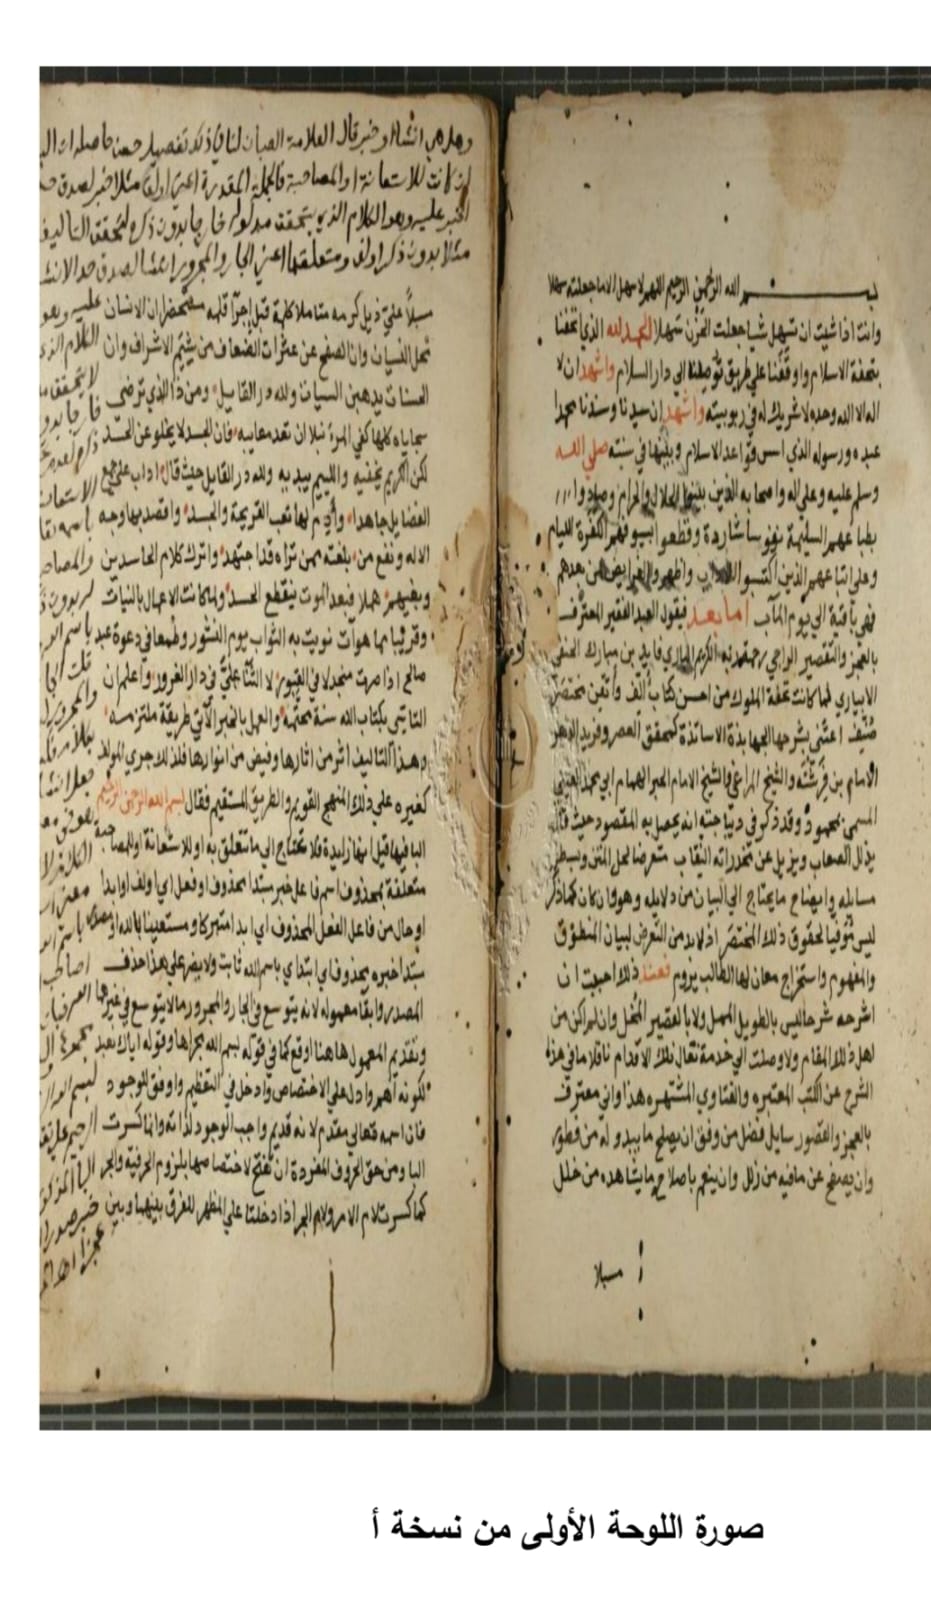 بسم الله الرحمن الرحيم اللهم لا سهل الا ما جعلته سهلا
وانت اذا شيت ان تسهل شيا جعلت الحزن سهلا الحمد لله الذي اتحفنا
بتحفة الاسلام واوقفنا علي طريق توصلنا الى دار السلام واشهد ان لا
اله الا الله وحده لا شريك له في ربوبيته واشهد ان سيدنا وسندنا محمدا
عبده ورسوله الذي اسس قواعد الاسلام وبينها في سنته صلى الله
وسلم عليه وعلي اله واصحابه الذين بينوا الحلال والحرام وصادوا
بطباعهم السليمة نفوسا شاردة وقطعوا بسيوفهم الكفرة الليام
وعلي اتباعهم الذين اكتسبوا الاداب واظهروا الفرايض من بعدهم
فهي باقية الي يوم المآب اما بعد فيقول العبد الفقير المعترف
بالعجز والتقصير الراجي رحمة ربه الكريم الباري فايد بن مبارك الحنفي
الابياري لما كانت تحفة الملوك من احسن كتاب الف واتقن مختصر
صنف اعتنى بشرحها الجهابذة الاساتذة كمحقق العصر وفريد الدهر
الامام بن فرشته والشيخ الزاغي والشيخ الامام الحبر الهمام ابي محمد العيني
المسمى بمحمود وقد ذكر في ديباجته انه يحصل به المقصود حيث قال
يذلل الصعاب ويزيل عن مخدراته النقاب متعرضا لحل المتن وبسط
مسايله وايضاح ما يحتاج الي البيان من دلايله وهو وان كان كما ذكر
ليس موفيا لحقوق ذلك المختصر اذ لا بد من التعرض لبيان المنطوق
والمفهوم واستخراج معان لها الطالب يروم فعند ذلك احببت ان
اشرحه شرحا ليس بالطويل الممل ولا بالقصير المخل وان لم اكن من
اهل ذلك المقام ولا وصلت الي خدمة نعال تلك الاقدام ناقلا ما في هذا
الشرح عن الكتب المعتبره والفتاوي المشتهره هذا واني معترف
بالعجز والقصور سايل فضل من وقف ان يصلح ما يبدو له من فطور
وان يصفح عن ما فيه من زلل وان ينعم باصلاح ما يشاهده من خلل
مسبلا
وهل هي انشاء او خبر قال العلامة الصبان لنا في ذلك تفصيل حسن حاصله ان
ان كانت للاستعانة او المصاحبة فالجملة المقدرة اعني اولف مثلا خبر لصدق
الخبر عليه وهو الكلام الذي يتحقق مدلوله خارجا بدون ذكره لتحقق التاليف
مثلا بدون ذكر اولف ومتعلقها اعني الجار والمجرور انشا لصدق حد الانشا
عليه وهو
الكلام الذي
لا يتحقق
خارجا بدون
مسبلا علي ذيل كرمه متاملا كلمة قبل اجرآ قلمه مستحضرا ان الانسان
محل النسيان وان الصفح عن عثرات الضعاف من شيم الاشراف وان
الحسنات يذهبن السيات ولله در القايل ومن ذا الذي ترضى
سجاياه كلها كفى المرء نبلا ان تعد معايبه فان الجسد لا يخلو عن الحسد
لكن الكريم يخفيه واللييم يبديه ولله در القايل حيث قال اداب علي جمع
الفضايل جاهدا وأدِم لها تعب القريحة والجسد واقصد بها وجه
الاله ونفع من بلغته ممن تراه قد اجتهد واترك كلام الحاسدين
وبغيهم هملا فبعد الموت ينقطع الحسد ولما كانت الاعمال بالنيات
وقريبا ما هو آت نويت به الثواب يوم النشور وطمعا في دعوة عبد
صالح اذا صرت منجدلا في القبور لا الثنا عليّ في دار الغرور واعلم ان
التاسي بكتاب الله سنة محتمة والعمل بالخبر الآتي طريقة ملتزمة
وهذا التاليف اثر من اثارها وفيض من انوارها فلذلك جري المولف
كغيره علي ذلك المنهج القويم والطريق المستقيم فقال بسم الله الرحمن الرحيم
البا فيها قيل انها زايدة فلا تحتاج الى ما تتعلق به او للاستعانة او للمصاحبة
متعلقة بمحذوف اسم فاعل خبر مبتدا محذوف او فعل اي اولف او ابدا
او حال من فاعل الفعل المحذوف اي ابدا متبركا ومستعينا بالله او مصدر
مبتدا خبره محذوف اي ابتداي باسم الله ثابت ولا يضر علي هذا حذف
المصدر وابقا معموله لانه يتوسع في الجار والمجرور ما لا يتوسع في غيرهما
وتقديم المعمول هاهنا اوقع كما في قوله بسم الله مجراها وقوله اياك نعبد
لكونه أهم وادل علي الاختصاص وادخل في التعظيم واوفق للوجود
فان اسمه تعالى مقدم لانه قديم واجب الوجود لذاته وانما كسرت
البا ومن حق الحروف المفردة ان تفتح لاختصاصها بلزوم الحرفية والجر
كما كسرت لام الامر ولام الجر اذا دخلتا علي المظهر للفرق بينهما وبين
صورة اللوحة الأولى من نسخة أ